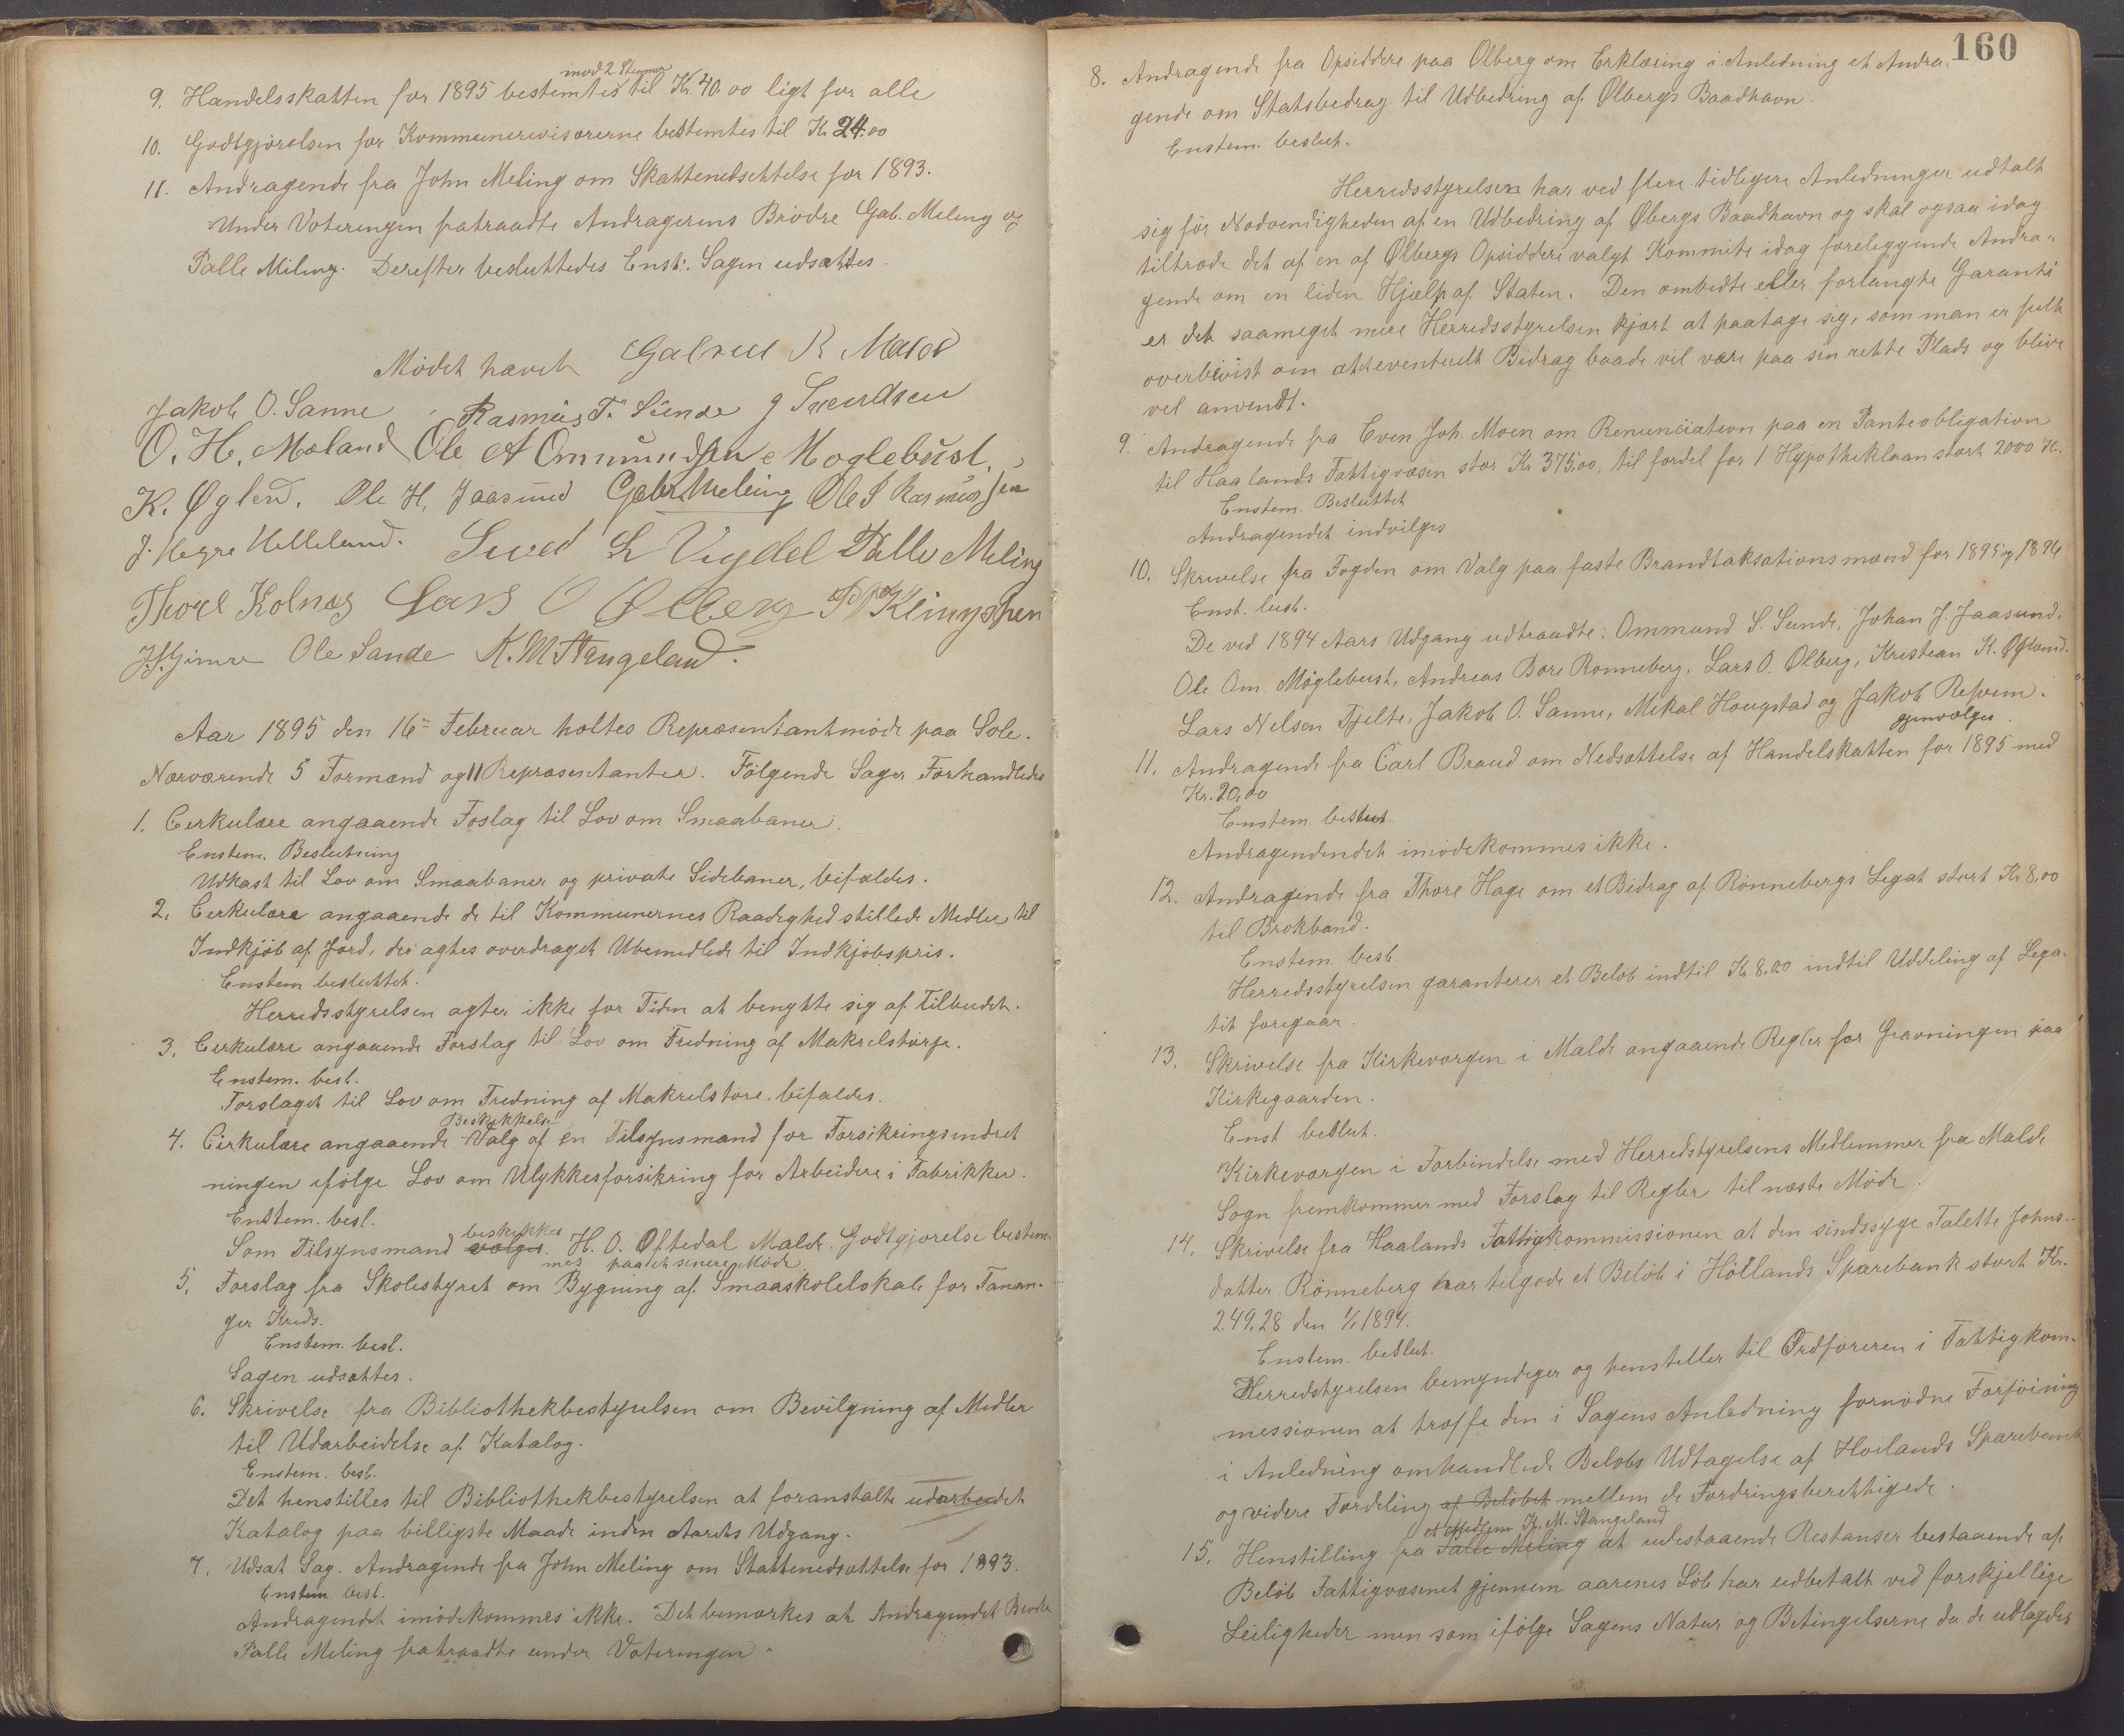 9. Handelsskatten for 1895 bestemtes mod 2 Stemmer til Kr. 40.00 ligt for alle
10. Godtgjørelsen for Kommunerevisorerne bestemtes til Kr 24.00
11. Andragende fra John Meling om Skattenedsettelse for 1893.
Under Voteringen fratraadte Andragerens Brødre Gab. Meling og
Palle Meling. Derefter besluttedes Enst: Sagen udsættes.
Mødet hævet
Gabriel R Malde
Jakob O. Sanne Rasmus T. Sunde J Svendsen
O. H. Mæland Ole A Ommundsen Moglebust.
K. Øglend. Ole H. Jaasund Gabr. Meling Ole S Rasmussen
J. Hegre Helleland. Sived L Vigdel Palle Meling
Thore Kolnæs Lars O Ølberg
Ole Sande K. M Stangeland.
Aar 1895 den 16de Februar holtes Repræsentantmøde paa Sole.
Nærværende 5 Formænd og 11 Repræsentanter. Følgende Sager Forhandledes
1. Cerkulære angaaende Foslag til Lov om Smaabaner.
Enstem. Beslutning
Udkast til Lov om Smaabaner og private Sidebaner, bifaldes.
2. Cerkulære angaaende de til Kommunernes Raadighed stillede Medler til
Indkjøb af Jord, der agtes overdraget Ubemedlede til Indkjøbspris.
Enstem besluttet.
Herredsstyrelsen agter ikke for Tiden at benytte sig af Tilbudet.
3. Cerkulære angaaende Forslag til Lov om Fredning af Makrelstørje.
Enstem. besl.
Forslaget til Lov om Fredning af Makrelstøre. bifaldes.
Beskikkelse
4. Cirkulære angaaende Valg af en Tilsynsmand for Forsikringsindret
ningen ifølge Lov om Ulykkesforsikring for Arbeidere i Fabrikker.
Enstem. besl.
beskikkes
Som Tilsynsmand vælges. H. O. Oftedal Malde. Godtgjørelse bestem-
mes paa et senere Møde
5. Forslag fra Skolestyret om Bygning af Smaaskolelokale for Tanan-
ger Kreds.
Enstem. besl.
Sagen udsættes.
6. Skrivelse fra Bibliothekbestyrelsen om Bevilgning af Medler
til Udarbeidelse af Katalog.
Enstem. besl.
Det henstilles til Bibliothekbestyrelsen at foranstalte udarbeidet
Katalog paa billigste Maade inden Aarets Udgang.
7. Udsat Sag. Andragende fra John Meling om Skattenedsættelse for 1893.
Enstem besl.
Andragendet imødekommes ikke. Det bemærkes at Andragendet Broder
Palle Meling fratraadte under Voteringen.
160
8. Andragende fra Opsiddere paa Ølberg om Erklæring i Anledning et Andra-
gende om Statsbedrag til Udbedring af Ølbergs Baadhavn.
Enstem. beslut.
Herredsstyrelsen har ved flere tidligere Anledninger udtalt
sig for Nødvendigheden af en Udbedring af Øbergs Baadhavn og skal ogsaa idag
tiltræde det af en af Ølbergs Opsiddere valgt Kommite idag foreleggende Andra-
gende om en liden Hjælp af Staten. Den ombedte eller forlangte Garanti
er det saameget mere Herredsstyrelsen kjært at paatage sig, som man er fuldt
overbevist om at eventuelt Bidrag baade vil være paa sin rette Plads og blive
vel anvendt.
9. Andragende fra Even Joh. Moen om Renunciation paa en Panteobligation
til Haalands Fattigvæsen stor Kr 375.00. til fordel for 1 Hypotheklaan stort 2000 Kr.
Enstem. Besluttet
Andragendet indvilges
10. Skrivelse fra Fogden om Valg paa faste Brandtaksationsmænd for 1895 og 1896
Enst. besl.
De ved 1894 Aars Udgang udtraadte: Ommund S. Sunde, Johan J. Jaasund.
Ole Om. Møglebust, Andreas Bore Rønneberg. Lars O. Ølberg, Kristian K. Øglænd.
Lars Nelsen Tjelte, Jakob O. Sanne, Mikal Hougstad og Jakob Refvem.
gjenvælges.
11. Andragende fra Carl Braud om Nedsættelse af Handelskatten for 1895 med
Kr. 20,00
Enstem. beslut.
Andragendendet imødekommes ikke.
12. Andragende fra Thore Hage om et Bidrag af Rønnebergs Legat stort Kr 8,00
til Brokbaand.
Enstem. besl.
Herredsstyrelsen garanterer et Beløb indtil Kr. 8.00 indtil Uddeling af Lega-
tet foregaar.
13. Skrivelse fra Kirkeværgen i Malde angaaende Regler for Gravningen paa
Kirkegaarden.
Enst beslut.
Kirkeværgen i Forbindelse med Herredstyrelsens Medlemmer fra Malde
Sogn fremkommer med Forslag til Regler til næste Møde.
14. Skrivelse fra Haalands Fattigkommissionen at den sindssyge Talette Johns-
datter Rønneberg har tilgode et Beløb i Høllands Sparebank stort Kr.
249.28 den 1/1 1894.
Enstem. beslut.
Herredstyrelsen bemyndiger og henstiller til Ordføreren i Fattigkom-
missionen at træffe den i Sagens Anledning fornødne Forføining
i Anledning omhandlede Beløbs Udtagelse af Høilands Sparebank
og videre Fordeling af Beløbet mellem de Fordringsberettigede.
et Medlem K. M. Stangeland
15. Henstilling fra Palle Meling at udestaaende Restanser bestaaende af
Beløb Fattigvæsenet gjennem aarenes Løb har udbetalt ved forskjellige
Leiligheder men som ifølge Sagens Natur og Betingelserne da de udlagdes